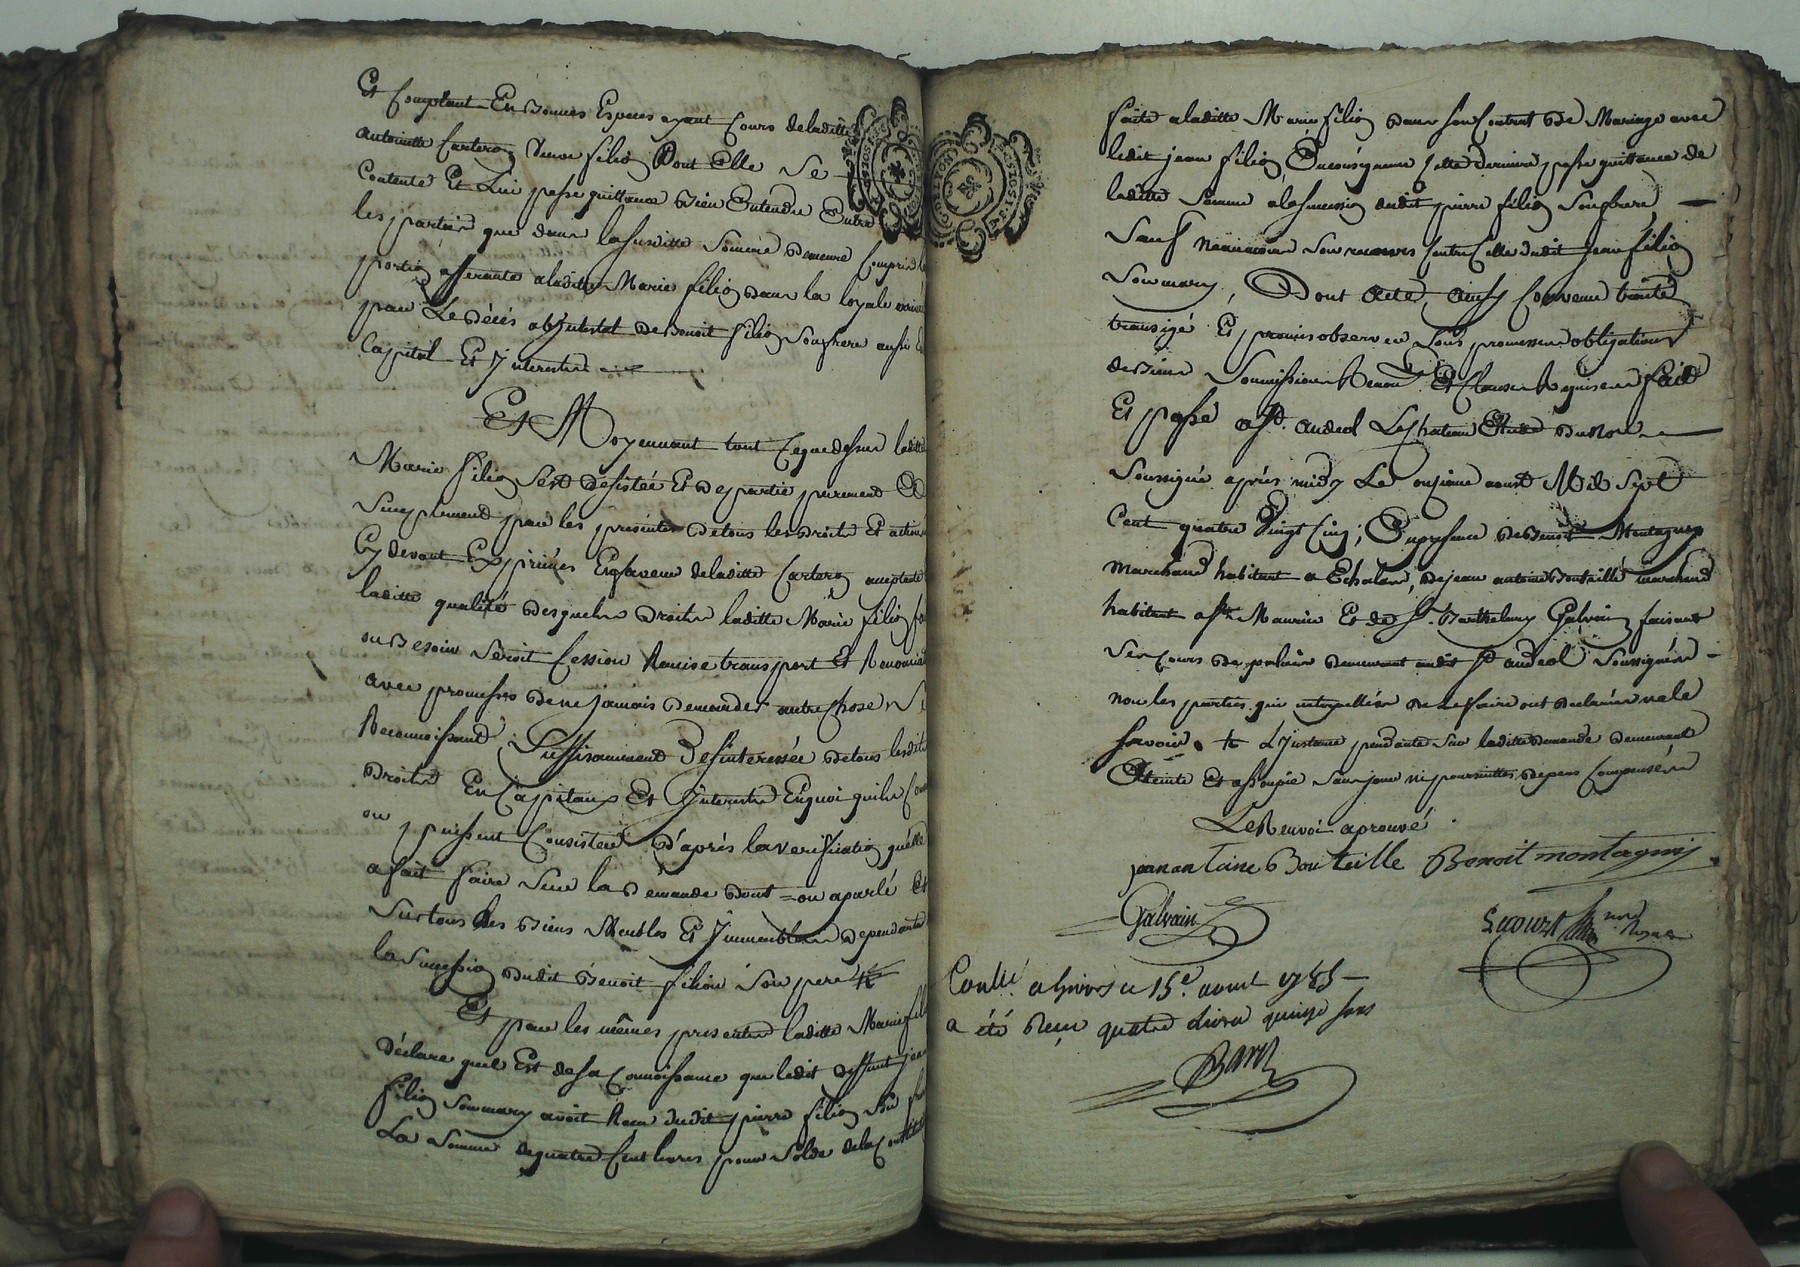 Et Comptant En Bonnes Especes ayant Cours deladitte
antoinette Carteron Veuve filion Dont Elle Se
Contente Et Lui passe quittance Bien Entendu Entre
les parties que dans lasusditte Somme demeure Compris la
portion afferante aladitte Marie filion dans la loyale
par Le décés abJntestat deBenoit filion Sonfrere aussi En
Capital Et Jnterestes
Et Moyennant tout Cequedessus laditte
Marie filion Sest desistée Et departie purement Et
Simplement par les présentes detous les droits Et actions
Cy devant Exprimés Enfaveur deladitte Carteron acceptante
laditte qualité desquels droits laditte Marie filion fait
ou Besoin Seroit Cession Remise transport Et Renonciation
avec promesses dene jamais demander autre chose Se
Reconnoissant Suffisamment Desinteressée detous lesdits
droits En Capitaux Et Jnterestes Enquoi quils
ou puissent Consister d'après laverification quelle
a fait faire Sur la demande dont = on aparlé Et
Surtous les Biens Meubles Et Jmmeubles dependants
la Succession dudit Benoit filion Son pere
Et par les mêmes presentes laditte Marie filion
déclare quil Est desa Connoissance que ledit deffunt jean
filion Sonmary avoit Recu dudit pierre filion
La Somme dequatre Cent livres pour Solde dela Constitution
faite aladitte Marie filion dans Son Contrat de Mariage avec
ledit jean filion Enconséquence cette derniere passe quittance de
laditte Somme alasuccession dudit pierre filion Sonfrere
Sauf Neanmoins Son recours contre Celle dudit jean filion
Sonmary, Dont acte, ainsy Convenu traité
transigé Et promis observer Sous promesses obligations
deBiens Soumissions Renon.on Et Clauses Requises fait
Et passé a St. andeol Lechateau Etude duNore
Soussigné après midy Le onzieme aoust Mil Sept
Cent quatre Vingt Cinq, Enpresence deBenoit Montagny
Marchand habitant a Echalas, dejean antoine Bouteille marchand
habitant a St. Maurice Et de Sr. Barthelemy Galvain faisant
Ses Cours de demeurant audit St. andeol Soussignés
non les parties qui interpellées de Lefaire ont declarées nele
Sçavoir. LJnstance pendante Sur laditte demande demeurant
Eteinte Et assoupie Sans jour ni poursuittes depens Compensés
LeRenvoi aprouvé
janantoine Bouteille Benoit montagny
Galvain
Lecourt
Conllé a Givors ce 15e. aoust 1785
a été Reçu quatre Livres quinze Sous